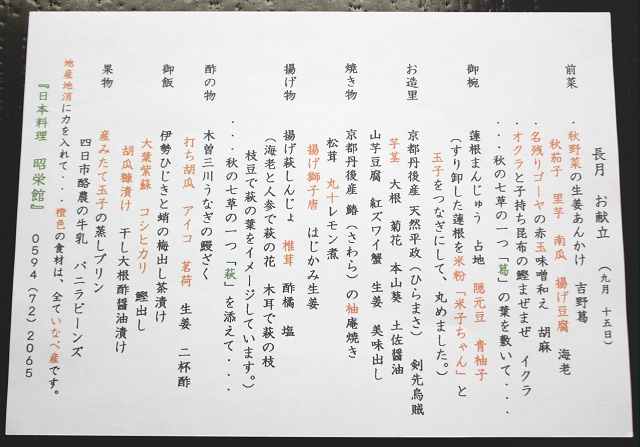 長月 お献立 (九月 十五日)
前菜 ・秋野菜の生姜あんかけ 吉野葛
秋茄子 里芋 南瓜 揚げ豆腐 海老
・名残りゴーヤの赤玉味噌和え 胡麻
・オクラと子持ち昆布の鰹まぜまぜ イクラ
・・・秋の七草の一つ「葛」の葉を敷いて・・・
御椀 蓮根まんじゅう 占地 隠元豆 青柚子
(すり卸した蓮根を米粉「米子ちゃん」と
玉子をつなぎにして、丸めました。)
お造里 京都丹後産 天然平政(ひらまさ) 剣先烏賊
芋茎 大根 菊花 本山葵 土佐醤油
山芋豆腐 紅ズワイ蟹 生姜 美味出し
焼き物 京都丹後産 鰆(さわら)の柚庵焼き
松茸 丸十レモン煮
揚げ獅子唐 はじかみ生姜
揚げ物 揚げ萩しんじょ 椎茸 酢橘 塩
(海老と人参で萩の花 木耳で萩の枝
枝豆で萩の葉をイメージしています。)
・・・・秋の七草の一つ「萩」を添えて・・・・
酢の物 木曽三川うなぎの鰻ざく
打ち胡瓜 アイコ 茗荷 生姜 二杯酢
御飯 伊勢ひじきと蛸の梅出し茶漬け
大葉紫蘇 コシヒカリ 鰹出し
胡瓜糠漬け 干し大根酢醤油漬け
果物 産みたて玉子の蒸しプリン
四日市酪農の牛乳 バニラビーンズ
地産地消に力を入れて・・・橙色の食材は、全ていなべ産です。
『日本料理 昭栄館』 0594(72)2065